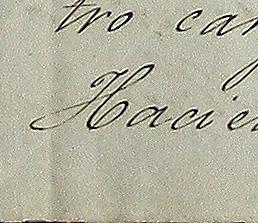 tro car
Hacien